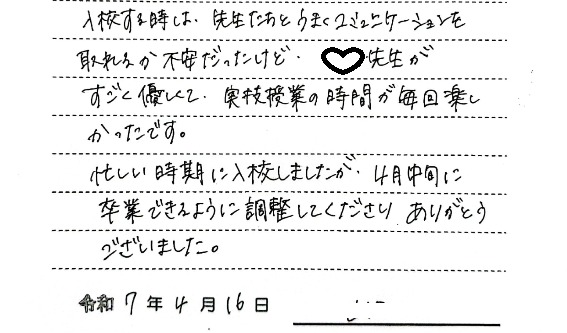 入校する時は、先生たちとうまくコミュニケーションを
取れるか不安だったけど、先生が
すごく優しくて、実技授業の時間が毎回楽し
かったです。
忙しい時期に入校しましたが、4月中旬に
卒業できるように調整してくださり ありがとう
ございました。
令和7年4月16日